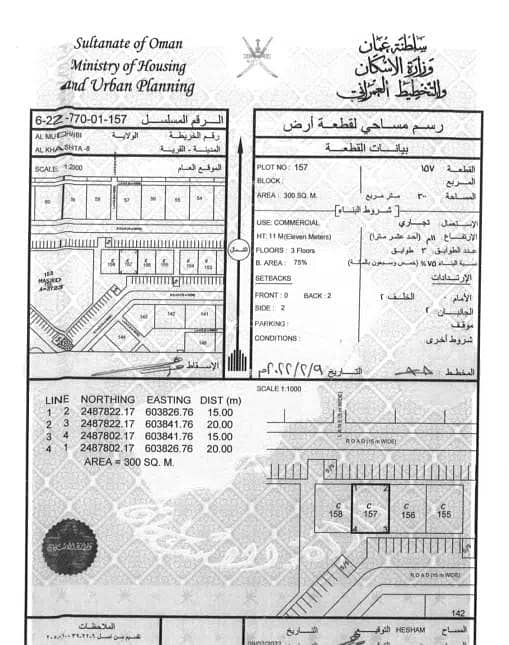 Sultanate of Oman
Ministry of Housing
and Urban Planning
سلطنة عمان
وزارة الإسكان
والتخطيط العمراني
6-22-770-01-157
الرقم المسلسل
رقم الخريطة
الولاية
المدينة - القرية
SCALE:
الموقع العام
رسم مساحي لقطعة أرض
بيانات القطعة
PLOT NO : 157
القطعة ١٥٧
BLOCK :
المربع
AREA : 300 SQ. M.
المساحة ٣٠٠ متر مربع
[ شروط البناء ]
USE: COMMERCIAL
الإستعمال: تجاري
HT: 11 M(Eleven Meters)
الإرتفاع ١١م (أحد عشر مترا)
FLOORS : 3 Floors
عدد الطوابق ٣ طوابق
B. AREA : 75%
نسبة البناء ٧٥% (خمس وسبعون بالمئة)
SETBACKS
الإرتدادات
FRONT : 0 BACK : 2
الأمام ٠ الخلف ٢
SIDE : 2
الجانبان ٢
PARKING :
موقف
CONDITIONS :
شروط أخرى
المخطط
التاريخ ٢٠٢٢/٢/٩م
الشمال
60
57
156
155
154
153
MASJED
142
141
144
146
الإسقاط
SCALE 1:1000
LINE NORTHING EASTING DIST (m)
1 2 2487822.17 603826.76 15.00
2 3 2487822.17 603841.76 20.00
3 4 2487802.17 603841.76 15.00
4 1 2487802.17 603826.76 20.00
AREA = 300 SQ. M.
ROAD (15 m WIDE)
C 158
C 157
C 156
C 155
2
4
3
ROAD (15 m WIDE)
142
الملاحظات
المساح HESHAM التوقيع
التاريخ